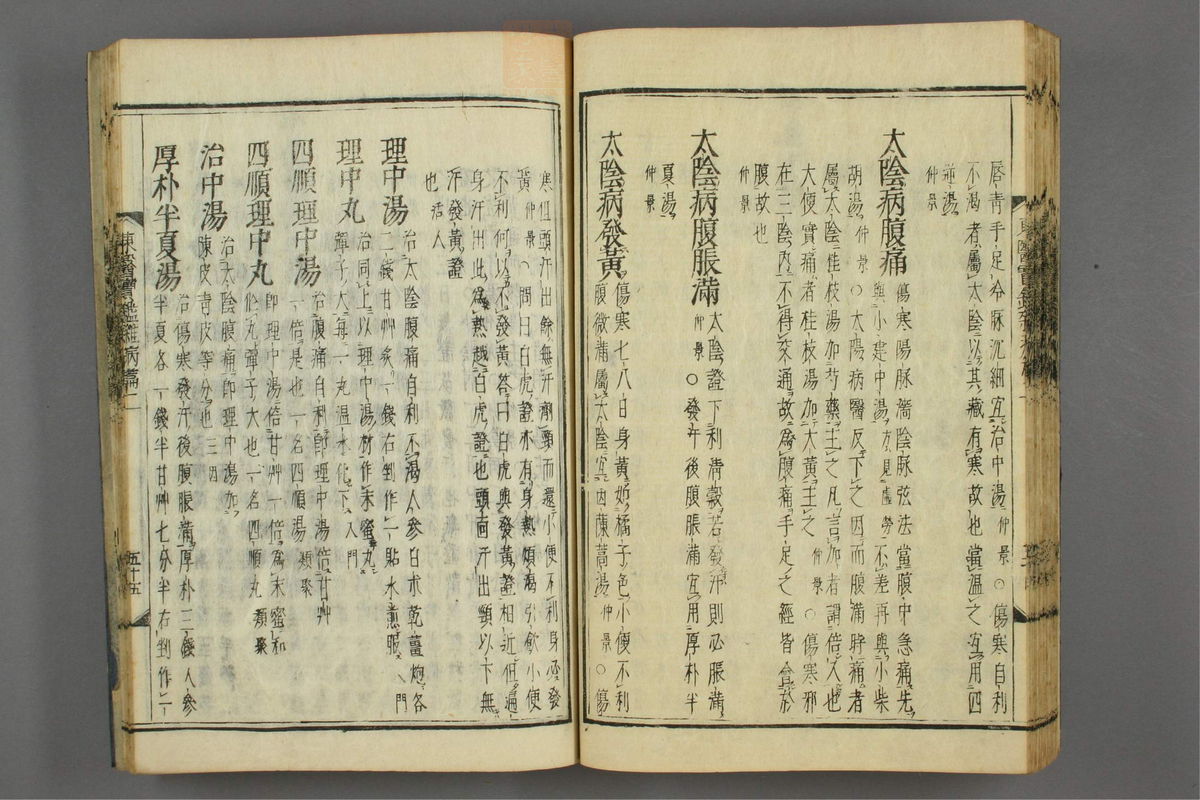 唇青手足冷脉沉細宜治中湯仲景○傷寒自利
不渴者屬太陰以其藏有寒故也當溫之宜用四
逆湯
仲景
太陰病腹痛
傷寒陽脉濇陰脉弦法當腹中急痛先
與小建中湯方見虛勞不差再與小柴
胡湯仲景○太陽病醫反下之因而腹滿時痛者
屬太陰桂枝湯加芍藥主之凡言加者謂倍入也
大便實痛者桂枝湯加大黃主之仲景○傷寒邪
在三陰內不得交通故爲腹痛手足之經皆會於
腹故也
仲景
太陰病腹脹滿
太陰證下利淸穀若發汗則必脹滿
仲景○發汗後腹脹滿宜用厚朴半
夏湯
仲景
太陰病發黃
傷寒七八日身黃如橘子色小便不利
腹微滿屬太陰宜茵蔯蒿湯仲景○傷
寒但頭汗出餘無汗劑頸而還小便不利身必發
黃仲景○問曰白虎證亦有身熱煩渴引飮小便
不利何以不發黃答曰白虎與發黃證相近但遍
身汗出此爲熱越白虎證也頭面汗出頸以下無
汗發黃證
也活人
理中湯
治太陰腹痛自利不渴人參白朮乾薑炮各
二錢甘艸炙一錢右剉作一貼水煎服入門
理中丸
治同上以理中湯材作末蜜丸
彈子大每一丸溫水化下入門
四順理中湯
治腹痛自利卽理中湯倍甘艸
一倍是也一名四順湯類聚
四順理中丸
卽理中湯倍甘艸一倍爲末蜜和
作丸彈子大也一名四順丸類聚
治中湯
治太陰腹痛卽理中湯加
陳皮靑皮等分也三因
厚朴半夏湯
治傷寒發汗後腹脹滿厚朴三錢人參
半夏各一錢半甘艸七分半右剉作一
東醫寶鑑雜病篇二
五十五